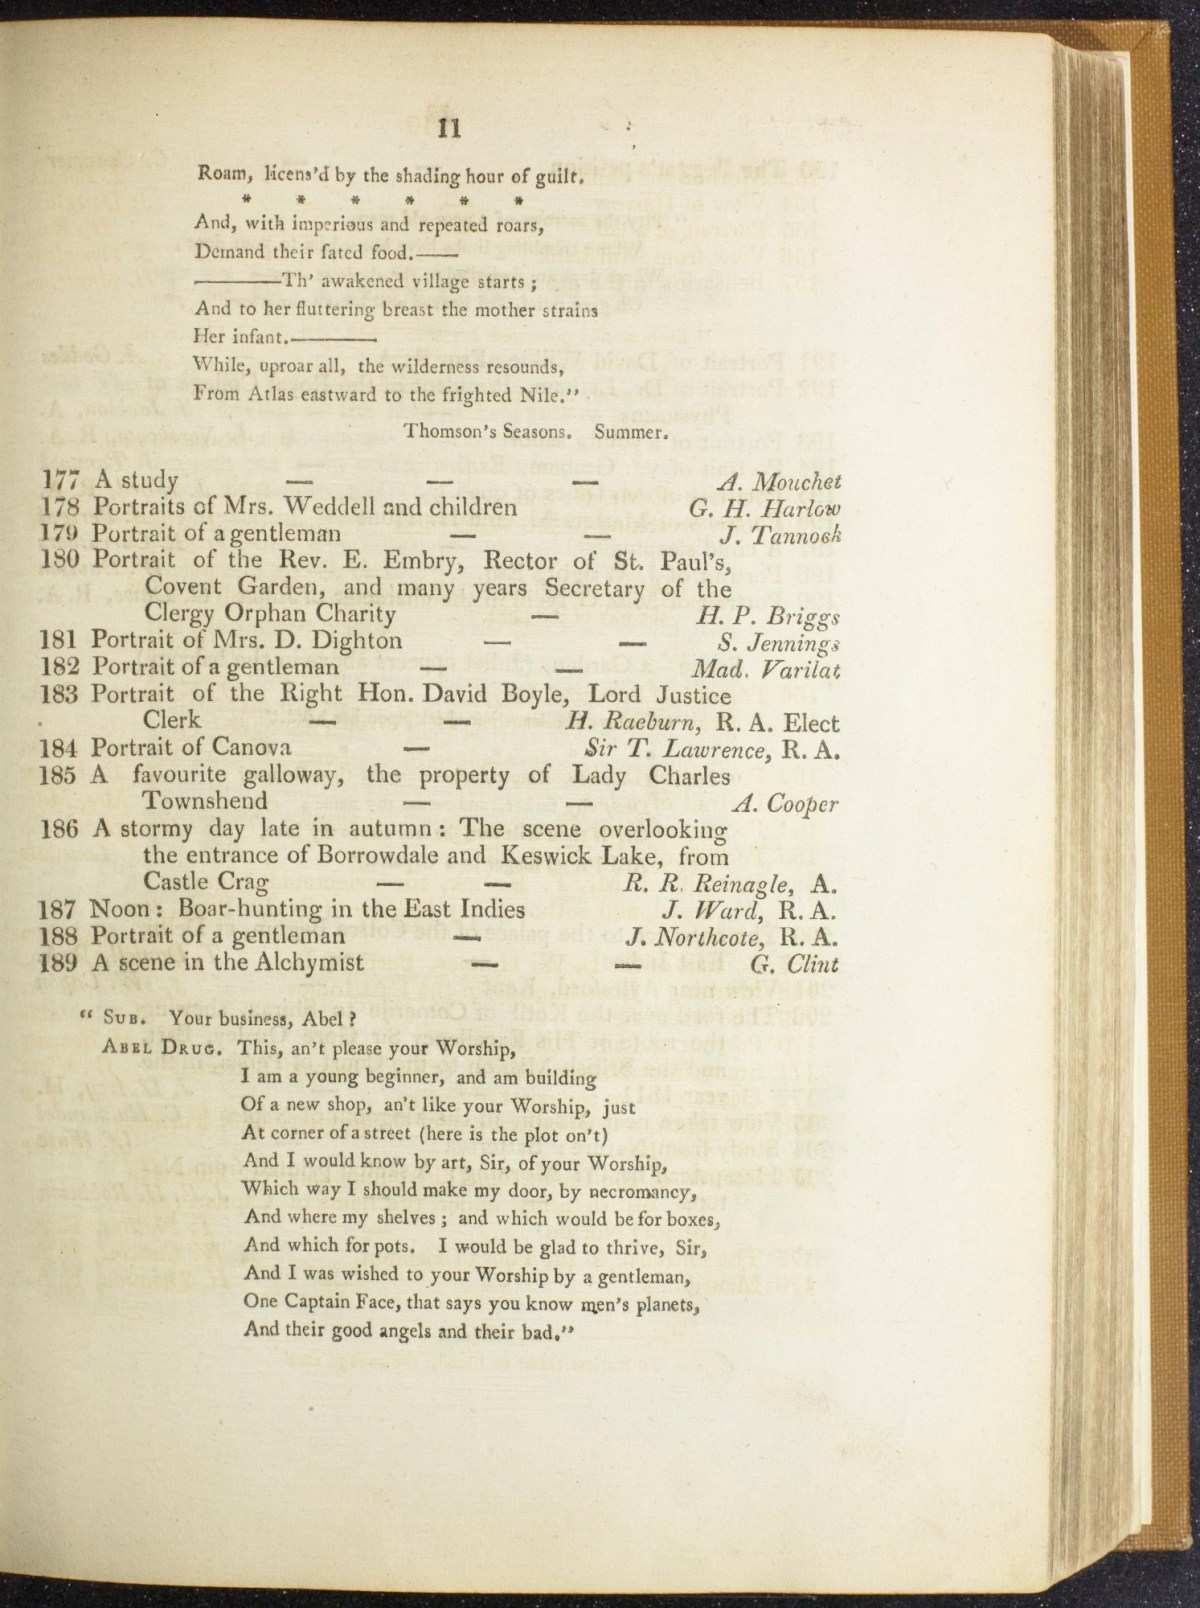 11
Roam, licens'd by the shading hour of guilt.
* * * * * *
And, with imperious and repeated roars,
Demand their fated food.——
————Th' awakened village starts ;
And to her fluttering breast the mother strains
Her infant.————
While, uproar all, the wilderness resounds,
From Atlas eastward to the frighted Nile."
Thomson's Seasons. Summer.
177 A study — — — A. Mouchet
178 Portraits of Mrs. Weddell and children G. H. Harlow
179 Portrait of a gentleman — — J. Tannock
180 Portrait of the Rev. E. Embry, Rector of St. Paul's,
Covent Garden, and many years Secretary of the
Clergy Orphan Charity — H. P. Briggs
181 Portrait of Mrs. D. Dighton — — S. Jennings
182 Portrait of a gentleman — — Mad. Varilat
183 Portrait of the Right Hon. David Boyle, Lord Justice
Clerk — — H. Raeburn, R. A. Elect
184 Portrait of Canova — Sir T. Lawrence, R. A.
185 A favourite galloway, the property of Lady Charles
Townshend — — A. Cooper
186 A stormy day late in autumn : The scene overlooking
the entrance of Borrowdale and Keswick Lake, from
Castle Crag — — R. R. Reinagle, A.
187 Noon : Boar-hunting in the East Indies J. Ward, R. A.
188 Portrait of a gentleman — J. Northcote, R. A.
189 A scene in the Alchymist — — G. Clint
" SUB. Your business, Abel ?
ABEL DRUG. This, an't please your Worship,
I am a young beginner, and am building
Of a new shop, an't like your Worship, just
At corner of a street (here is the plot on't)
And I would know by art, Sir, of your Worship,
Which way I should make my door, by necromancy,
And where my shelves ; and which would be for boxes,
And which for pots. I would be glad to thrive, Sir,
And I was wished to your Worship by a gentleman,
One Captain Face, that says you know men's planets,
And their good angels and their bad."